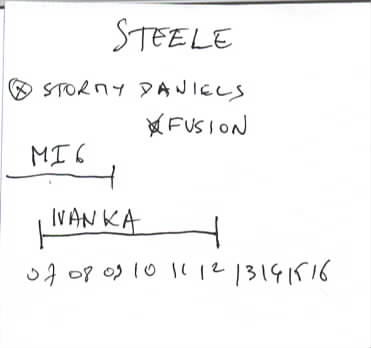 STEELE
ⓧ STORMY DANIELS
x FUSION
MI6
IVANKA
07 08 09 10 11 12 13 14 15 16